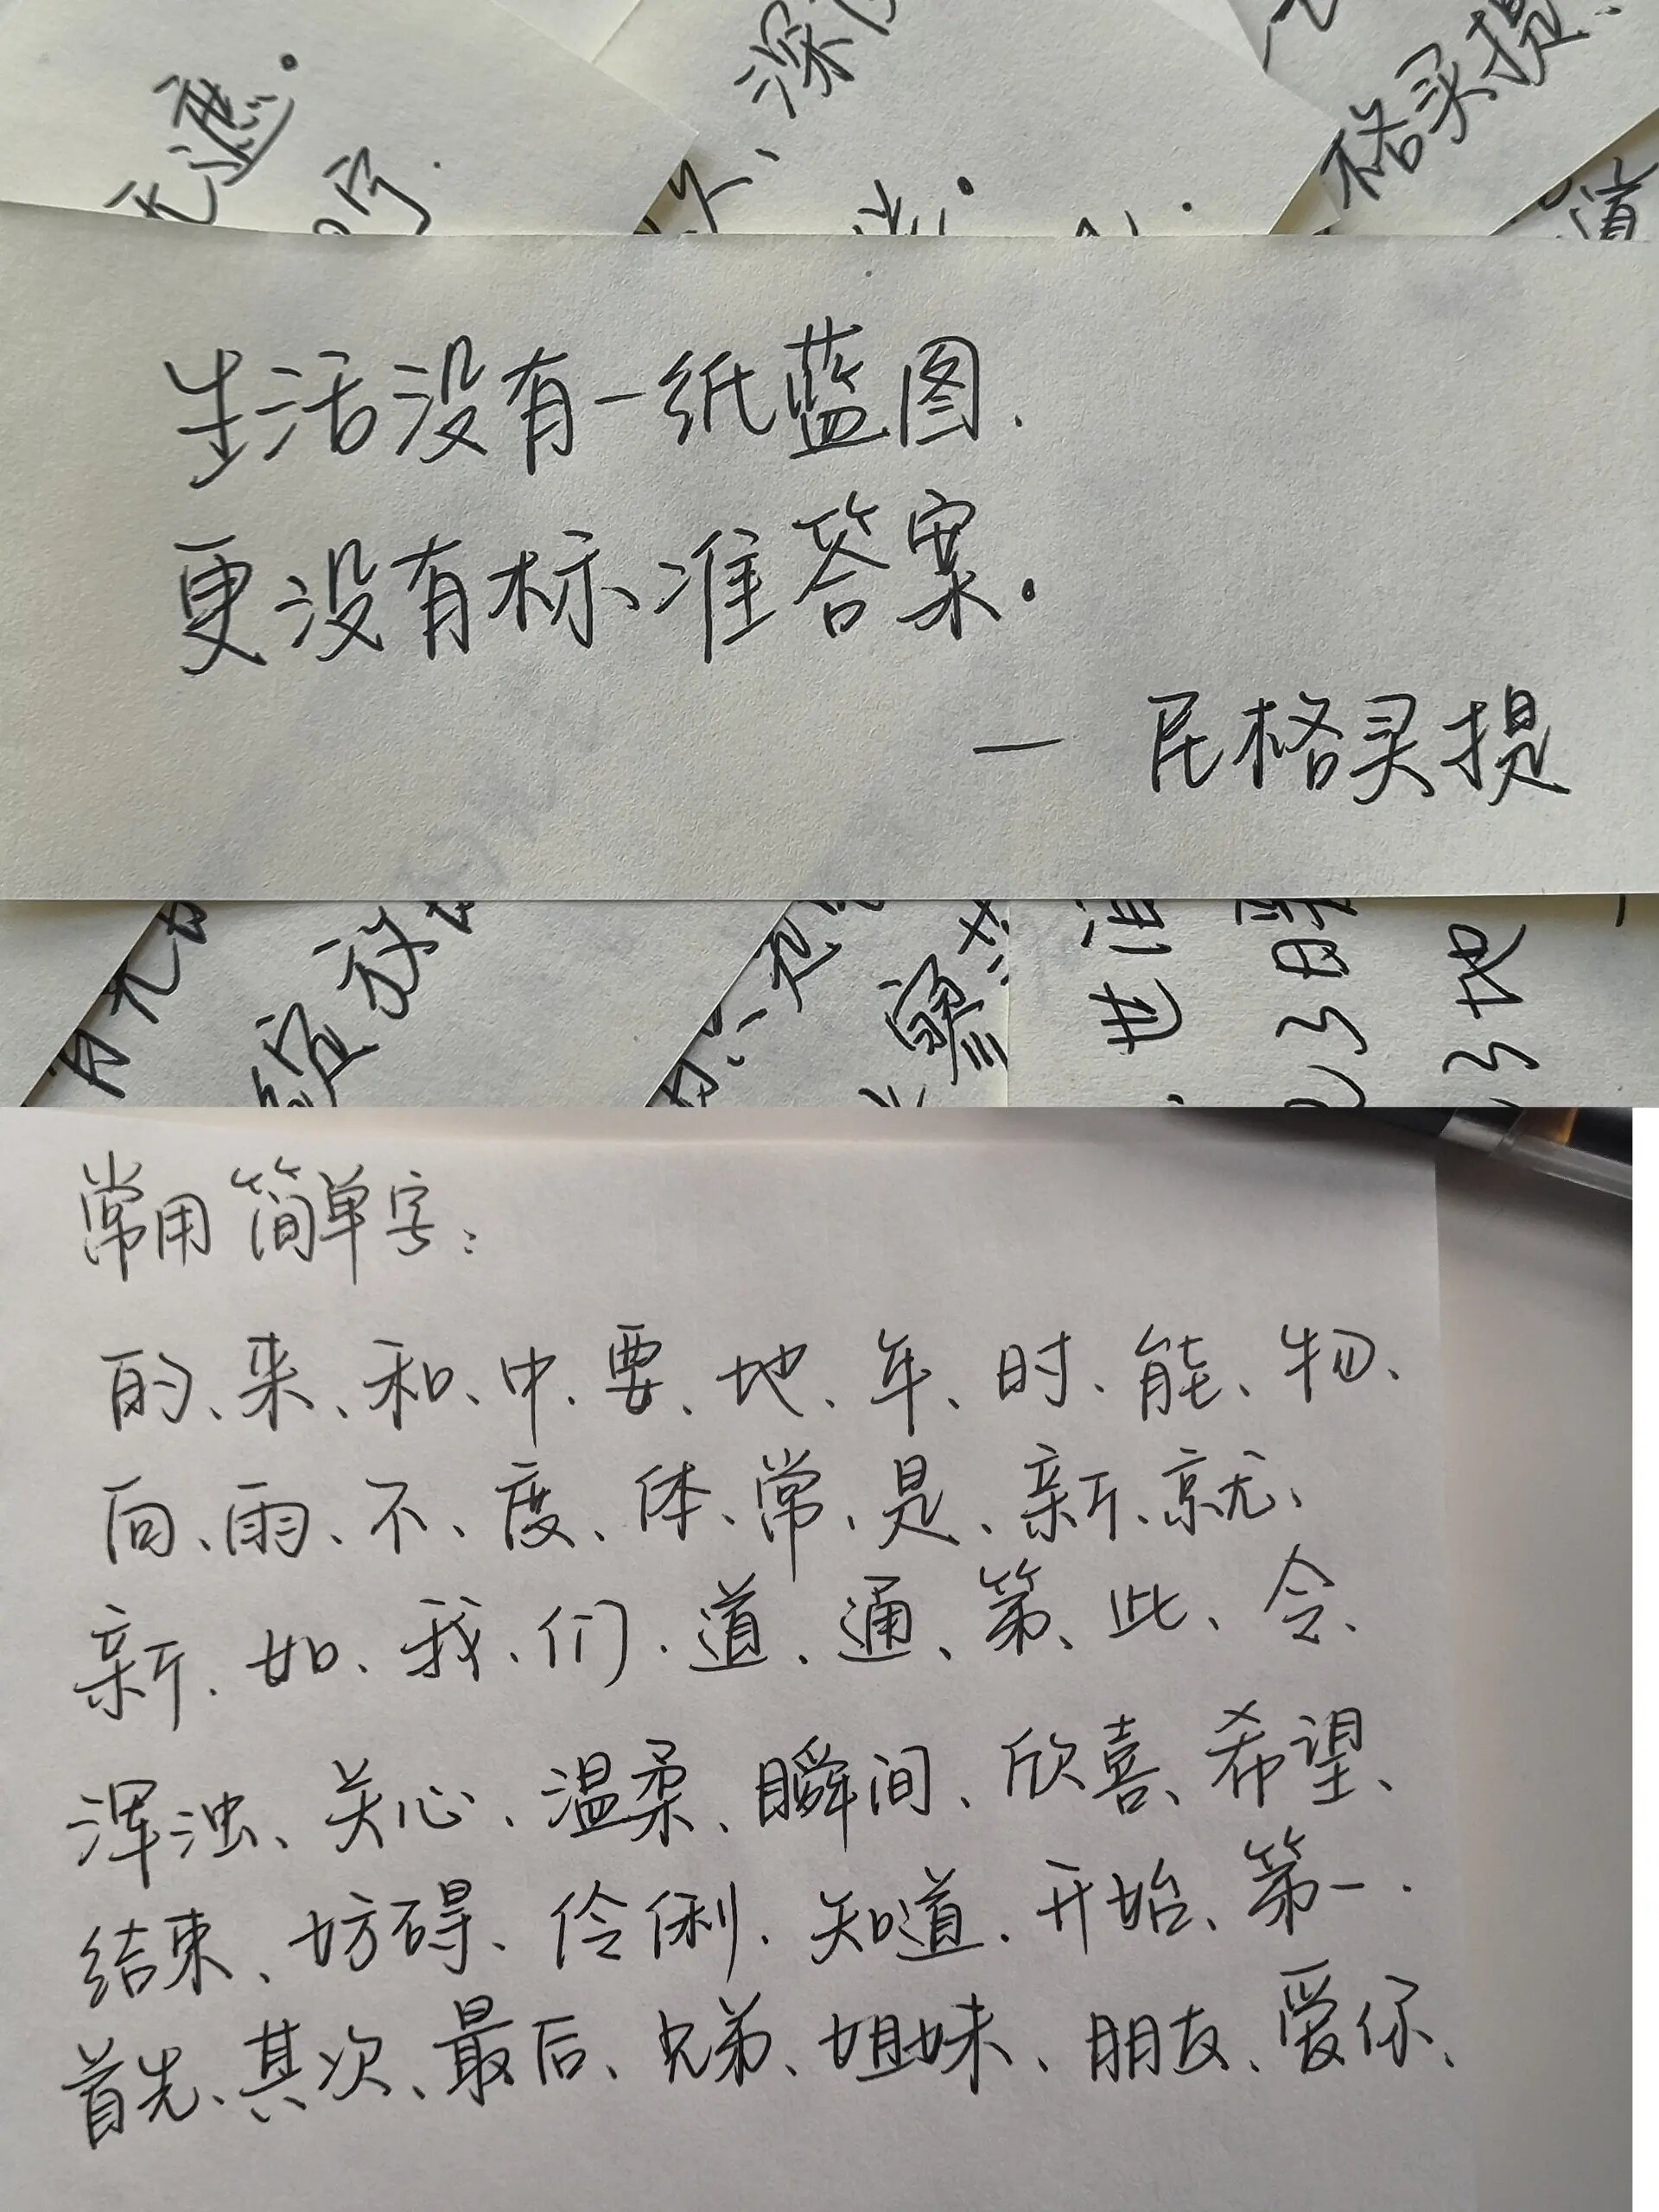 深
格买提
道
生活没有一纸蓝图.
更没有标准答案.
— 尼格买提
常用简单字:
的、来、和、中、要、地、年、时、能、物、
向、雨、不、度、体、常、是、新、就、
新、如、我、们、道、通、第、此、令、
浑浊、关心、温柔、瞬间、欣喜、希望、
结束、妨碍、伶俐、知道、开始、第一.
首先、其次、最后、兄弟、姐妹、朋友、爱你、